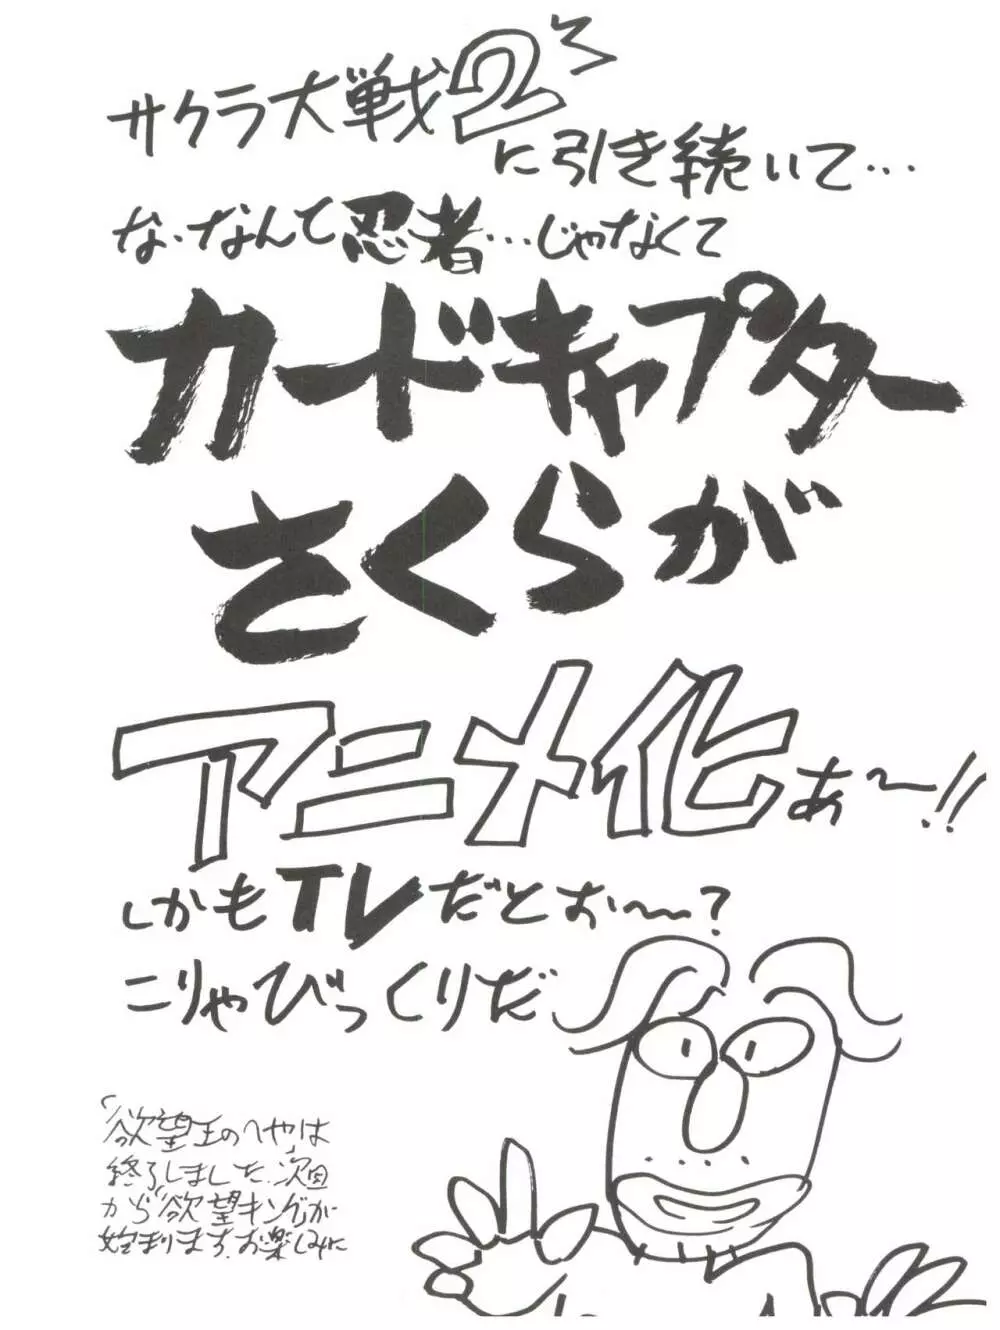 サクラ大戦2
に引き続いて…
な・なんて忍者…じゃなくて
カードキャプター
さくらが
アニメ化ぁ〜!!
しかもTVだとぉ〜?
こりゃびっくりだ
「欲望王のへや」は
終了しました.次回
から「欲望キング」が
始まります.お楽しみに